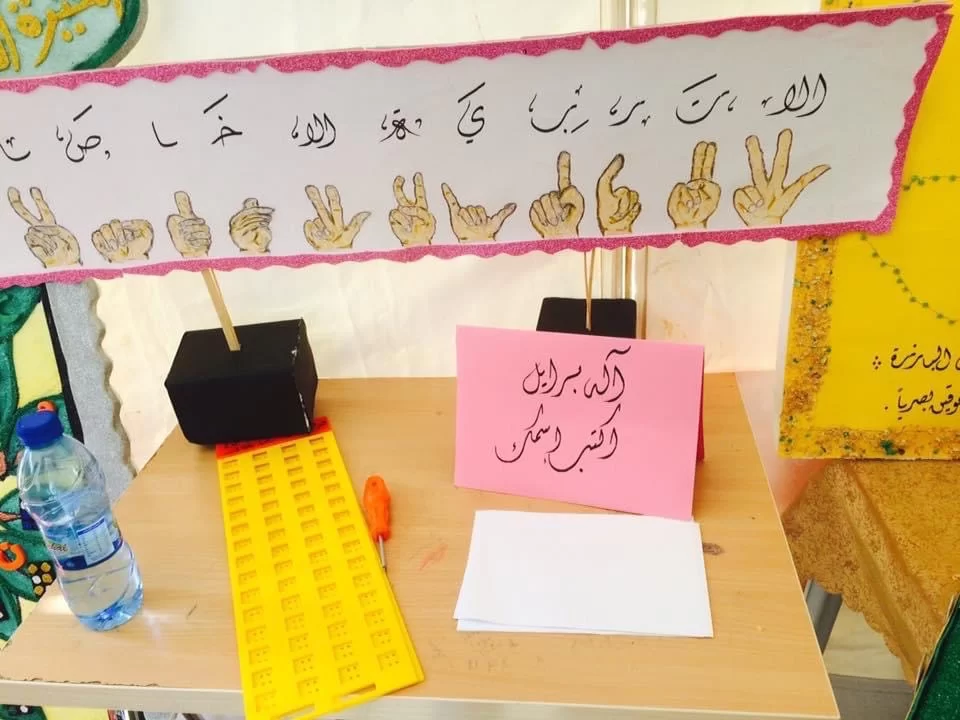 ال ت ر بِ يَ ة ال خَ ا صَ
آلة برايل
اكتب إسمك
البارزة
بصرياً .